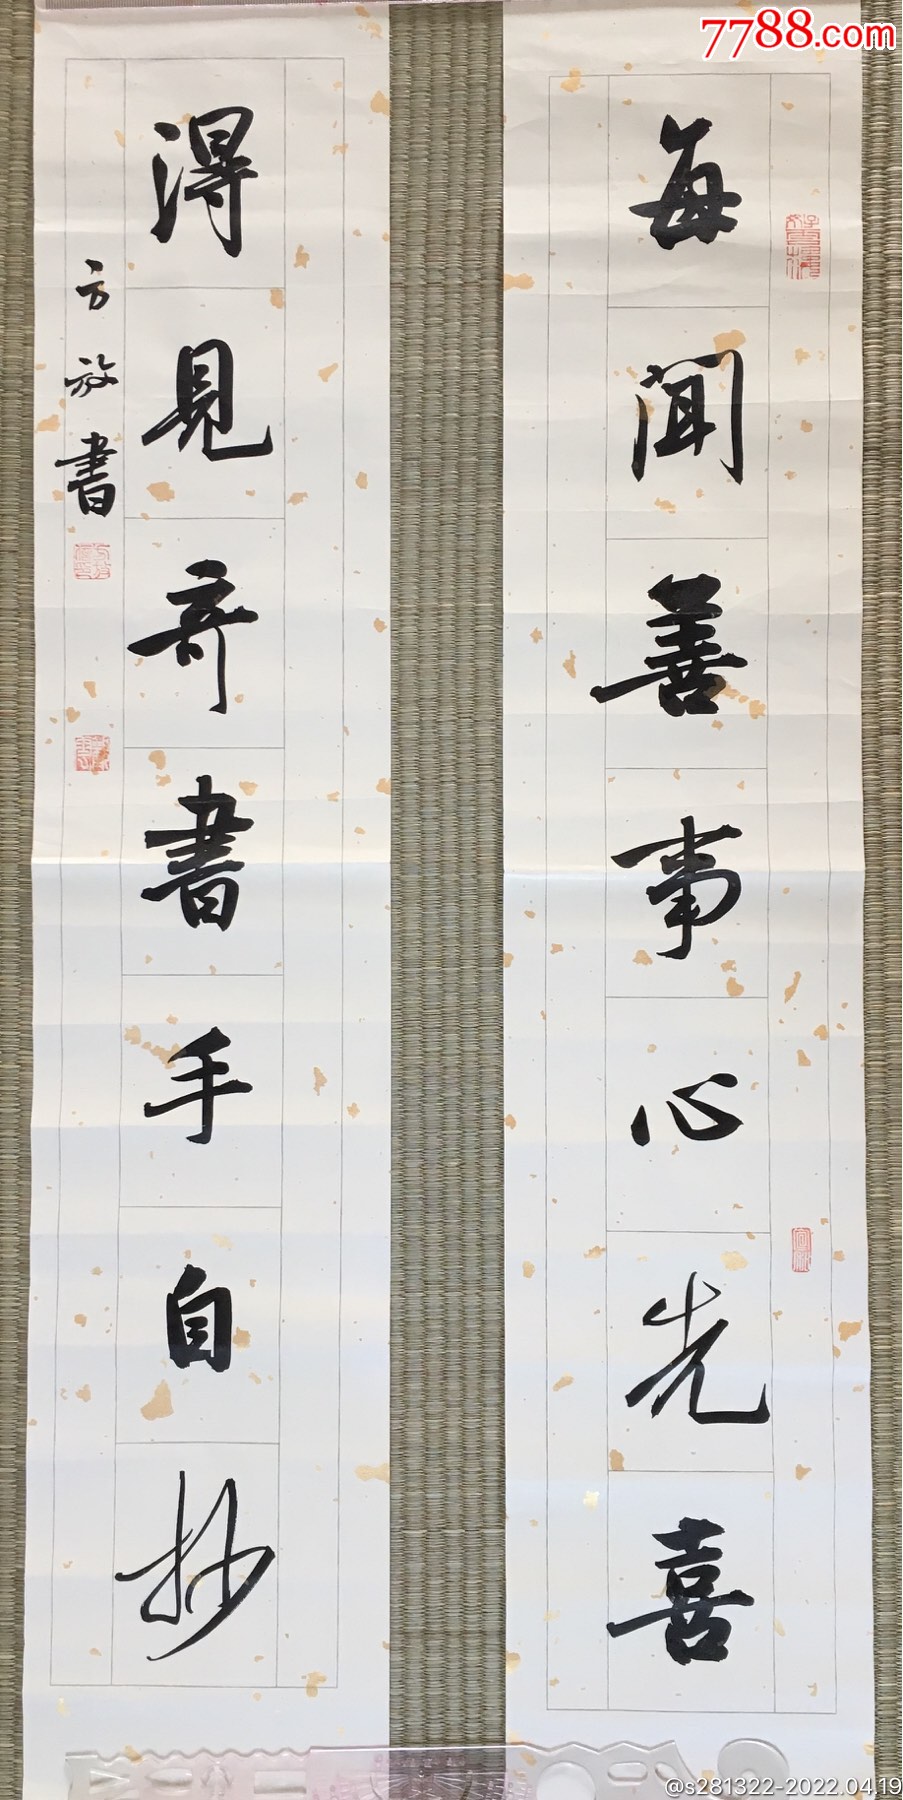 7788.com
每闻善事心先喜
得見奇書手自抄
方放書
@s281322-2022.04.19